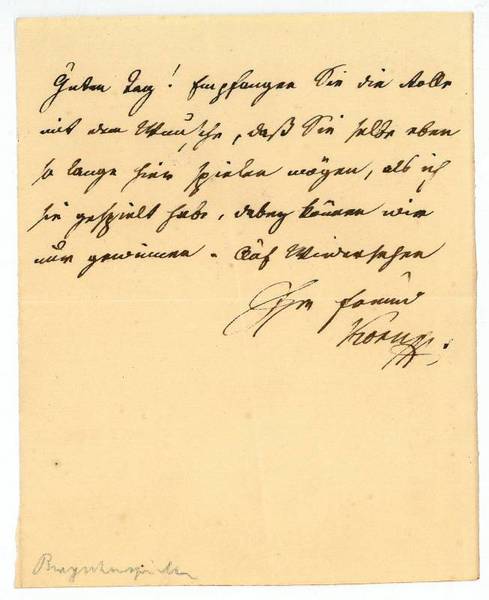 Guten Tag! Empfangen Sie die Rolle
mit dem Wunsche, daß Sie selbe eben
so lange hier spielen mögen, als ich
sie gespielt habe, dabey können wir
nur gewinnen. Auf Wiedersehen
Ihr Freund
Korn